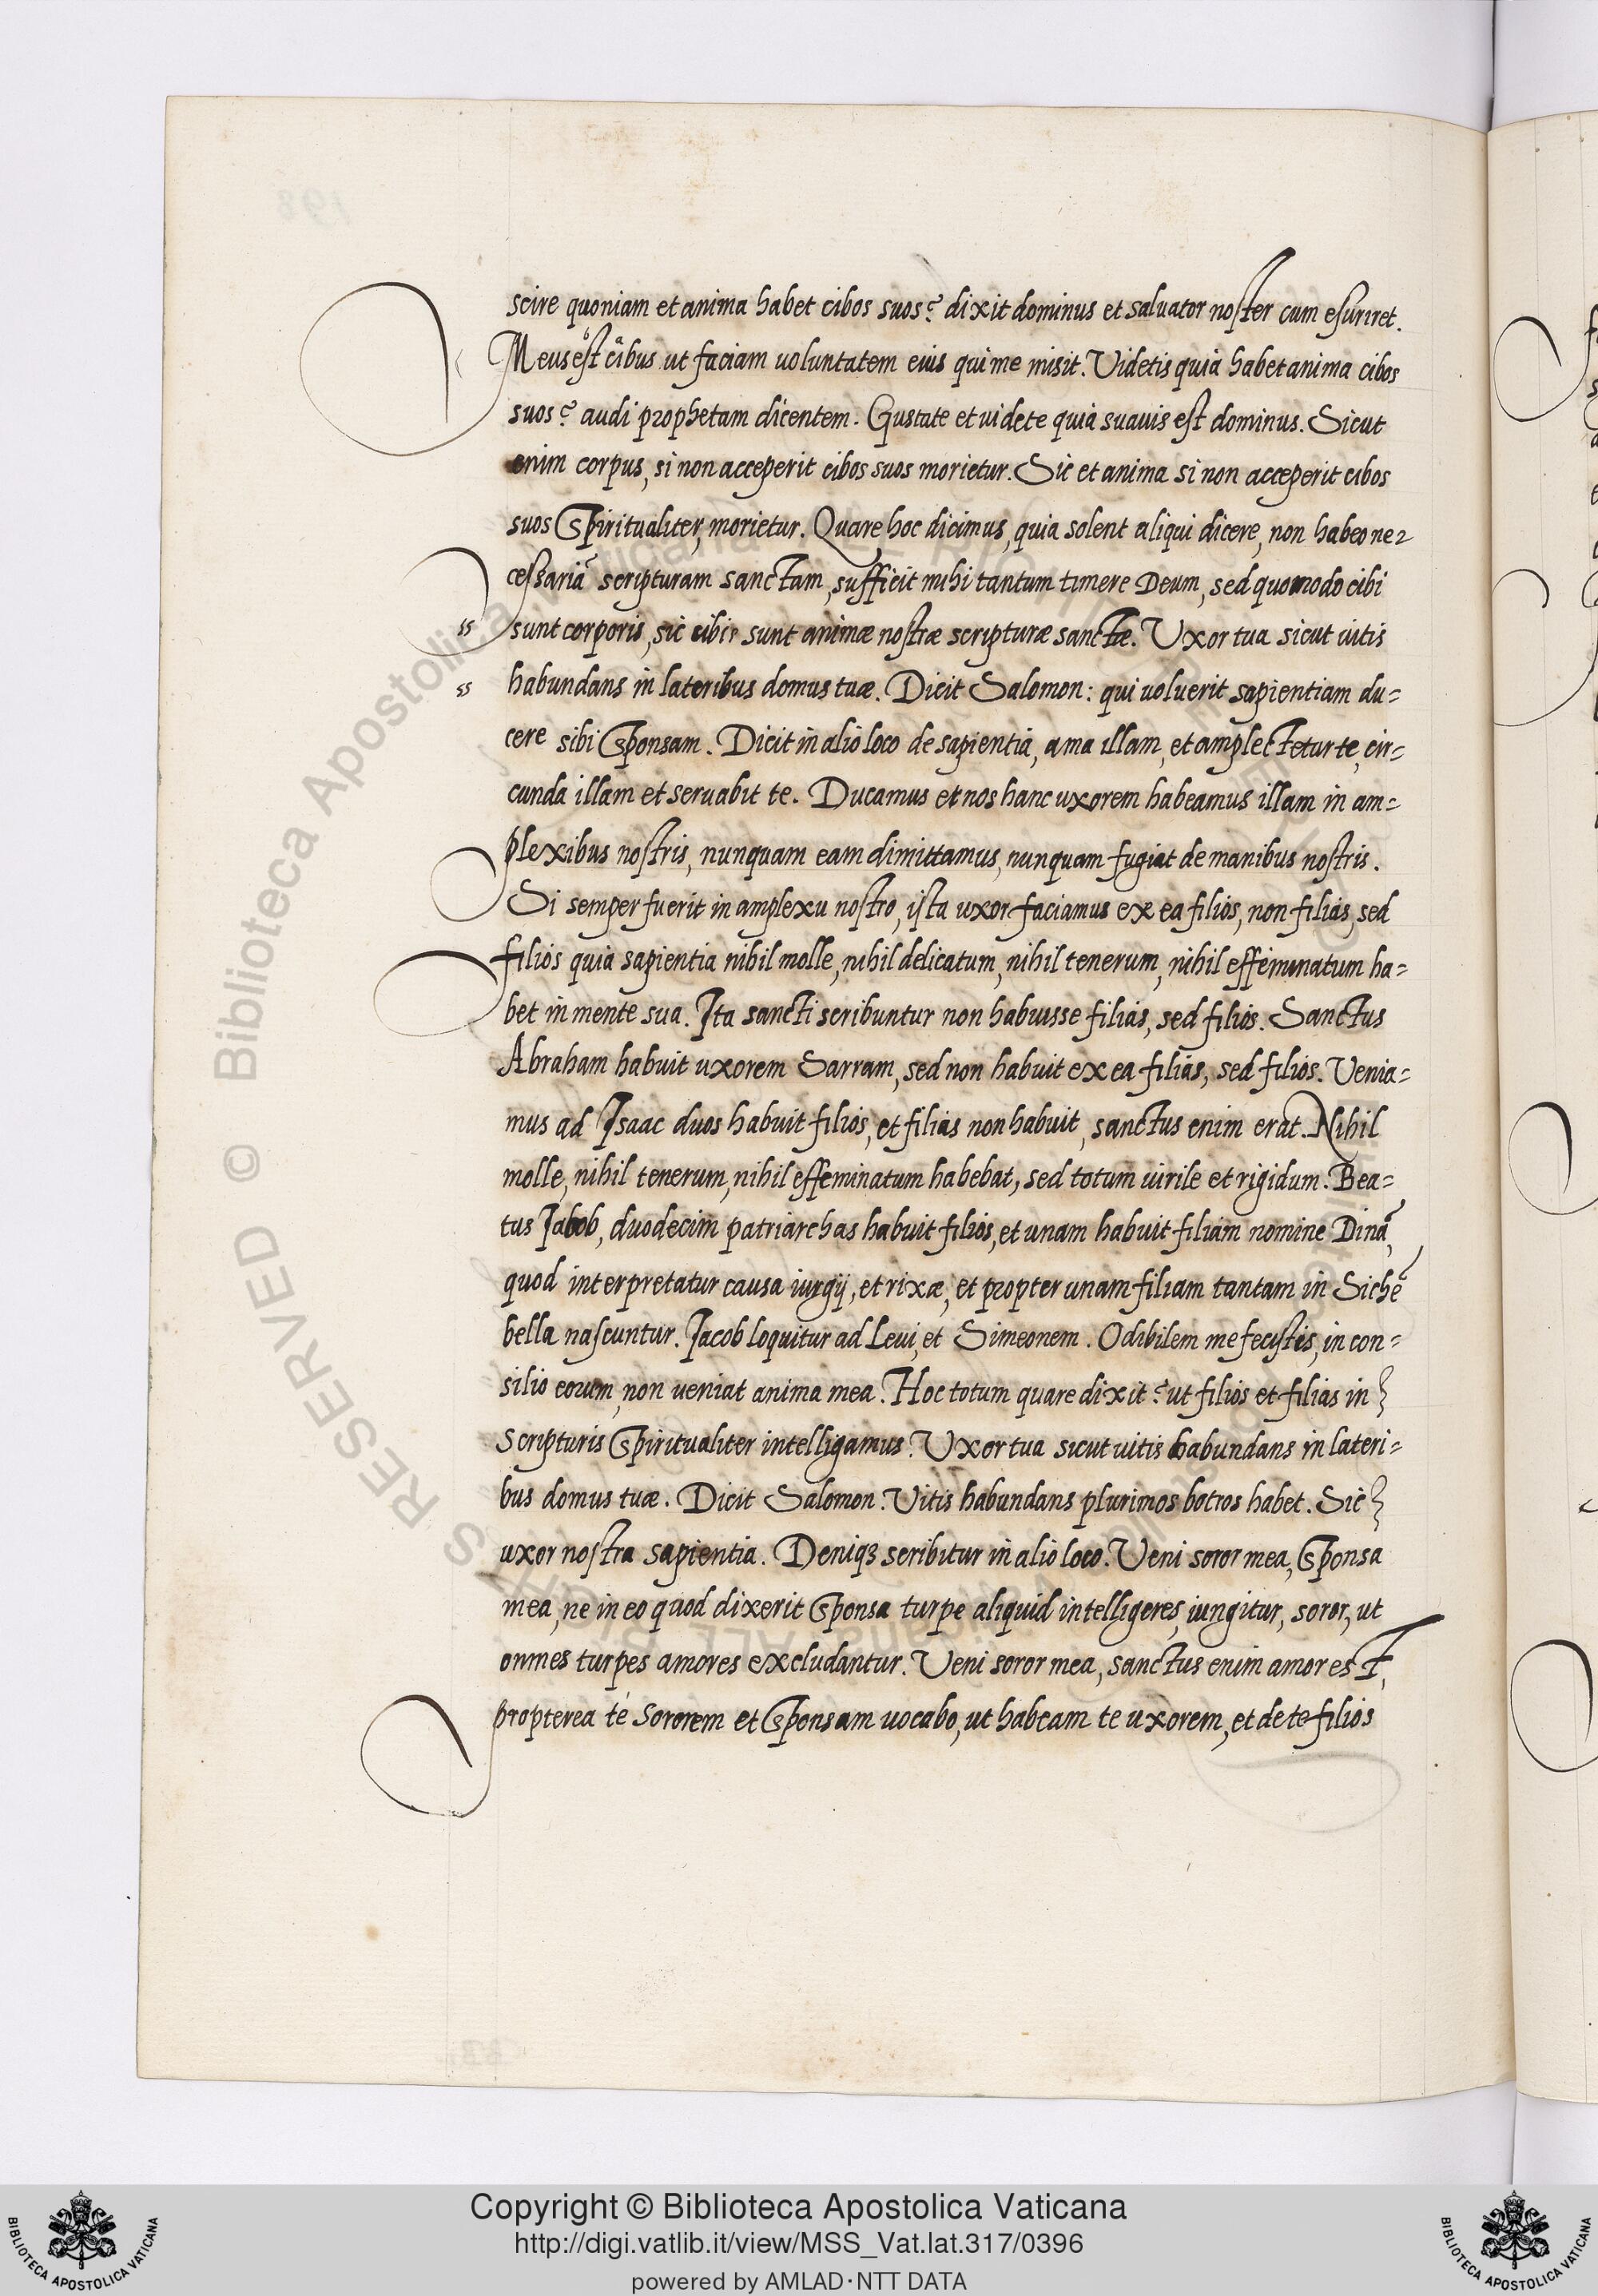 scire quoniam et anima habet cibos suos? dixit dominus et saluator noster cum esuriret.
Meus est cibus ut faciam uoluntatem eius qui me misit. Videtis quia habet anima cibos
suos? audi prophetam dicentem. Gustate et uidete quia suauis est dominus. Sicut
enim corpus, si non acceperit cibos suos morietur. Sic et anima si non acceperit cibos
suos Spiritualiter, morietur. Quare hoc dicimus, quia solent aliqui dicere, non habeo ne=
cessariā scripturam sanctam, sufficit mihi tantum timere Deum, sed quomodo cibi
ss sunt corporis, sic cibis sunt animæ nostræ scripturæ sanctæ. Vxor tua sicut uitis
ss habundans in lateribus domus tuæ. Dicit Salomon: qui uoluerit sapientiam du=
cere sibi Sponsam. Dicit in alio loco de sapientia, ama illam, et amplectetur te, cir=
cunda illam et seruabit te. Ducamus et nos hanc uxorem habeamus illam in am=
plexibus nostris, nunquam eam dimittamus, nunquam fugiat de manibus nostris.
Si semper fuerit in amplexu nostro, ista uxor faciamus ex ea filios, non filias, sed
filios quia sapientia nihil molle, nihil delicatum, nihil tenerum, nihil effeminatum ha=
bet in mente sua. Ita sancti scribuntur non habuisse filias, sed filios. Sanctus
Abraham habuit uxorem Sarram, sed non habuit ex ea filias, sed filios. Venia=
mus ad Isaac duos habuit filios, et filias non habuit, sanctus enim erat. Nihil
molle, nihil tenerum, nihil effeminatum habebat, sed totum uirile et rigidum. Bea=
tus Iabob, duodecim patriarchas habuit filios, et unam habuit filiam nomine Dinā,
quod interpretatur causa iurgij, et rixæ, et propter unam filiam tantam in Sichē
bella nascuntur. Iacob loquitur ad Leui, et Simeonem. Odibilem me fecistis, in con=
silio eorum, non ueniat anima mea. Hoc totum quare dixit? ut filios et filias in
Scripturis Spiritualiter intelligamus. Vxor tua sicut uitis habundans in lateri=
bus domus tuæ. Dicit Salomon. Vitis habundans plurimos botros habet. Sic
uxor nostra sapientia. Deniq3 scribitur in alio loco. Veni soror mea, Sponsa
mea, ne in eo quod dixerit Sponsa turpe aliquid intelligeres, iungitur, soror, ut
omnes turpes amores excludantur. Veni soror mea, sanctus enim amor est,
propterea te Sororem et Sponsam uocabo, ut habeam te uxorem, et de te filios
© Biblioteca Apostolica Vaticana
ALL RIGHTS RESERVED
Copyright © Biblioteca Apostolica Vaticana
http://digi.vatlib.it/view/MSS_Vat.lat.317/0396
powered by AMLAD·NTT DATA
BIBLIOTECA APOSTOLICA VATICANA
BIBLIOTECA APOSTOLICA VATICANA